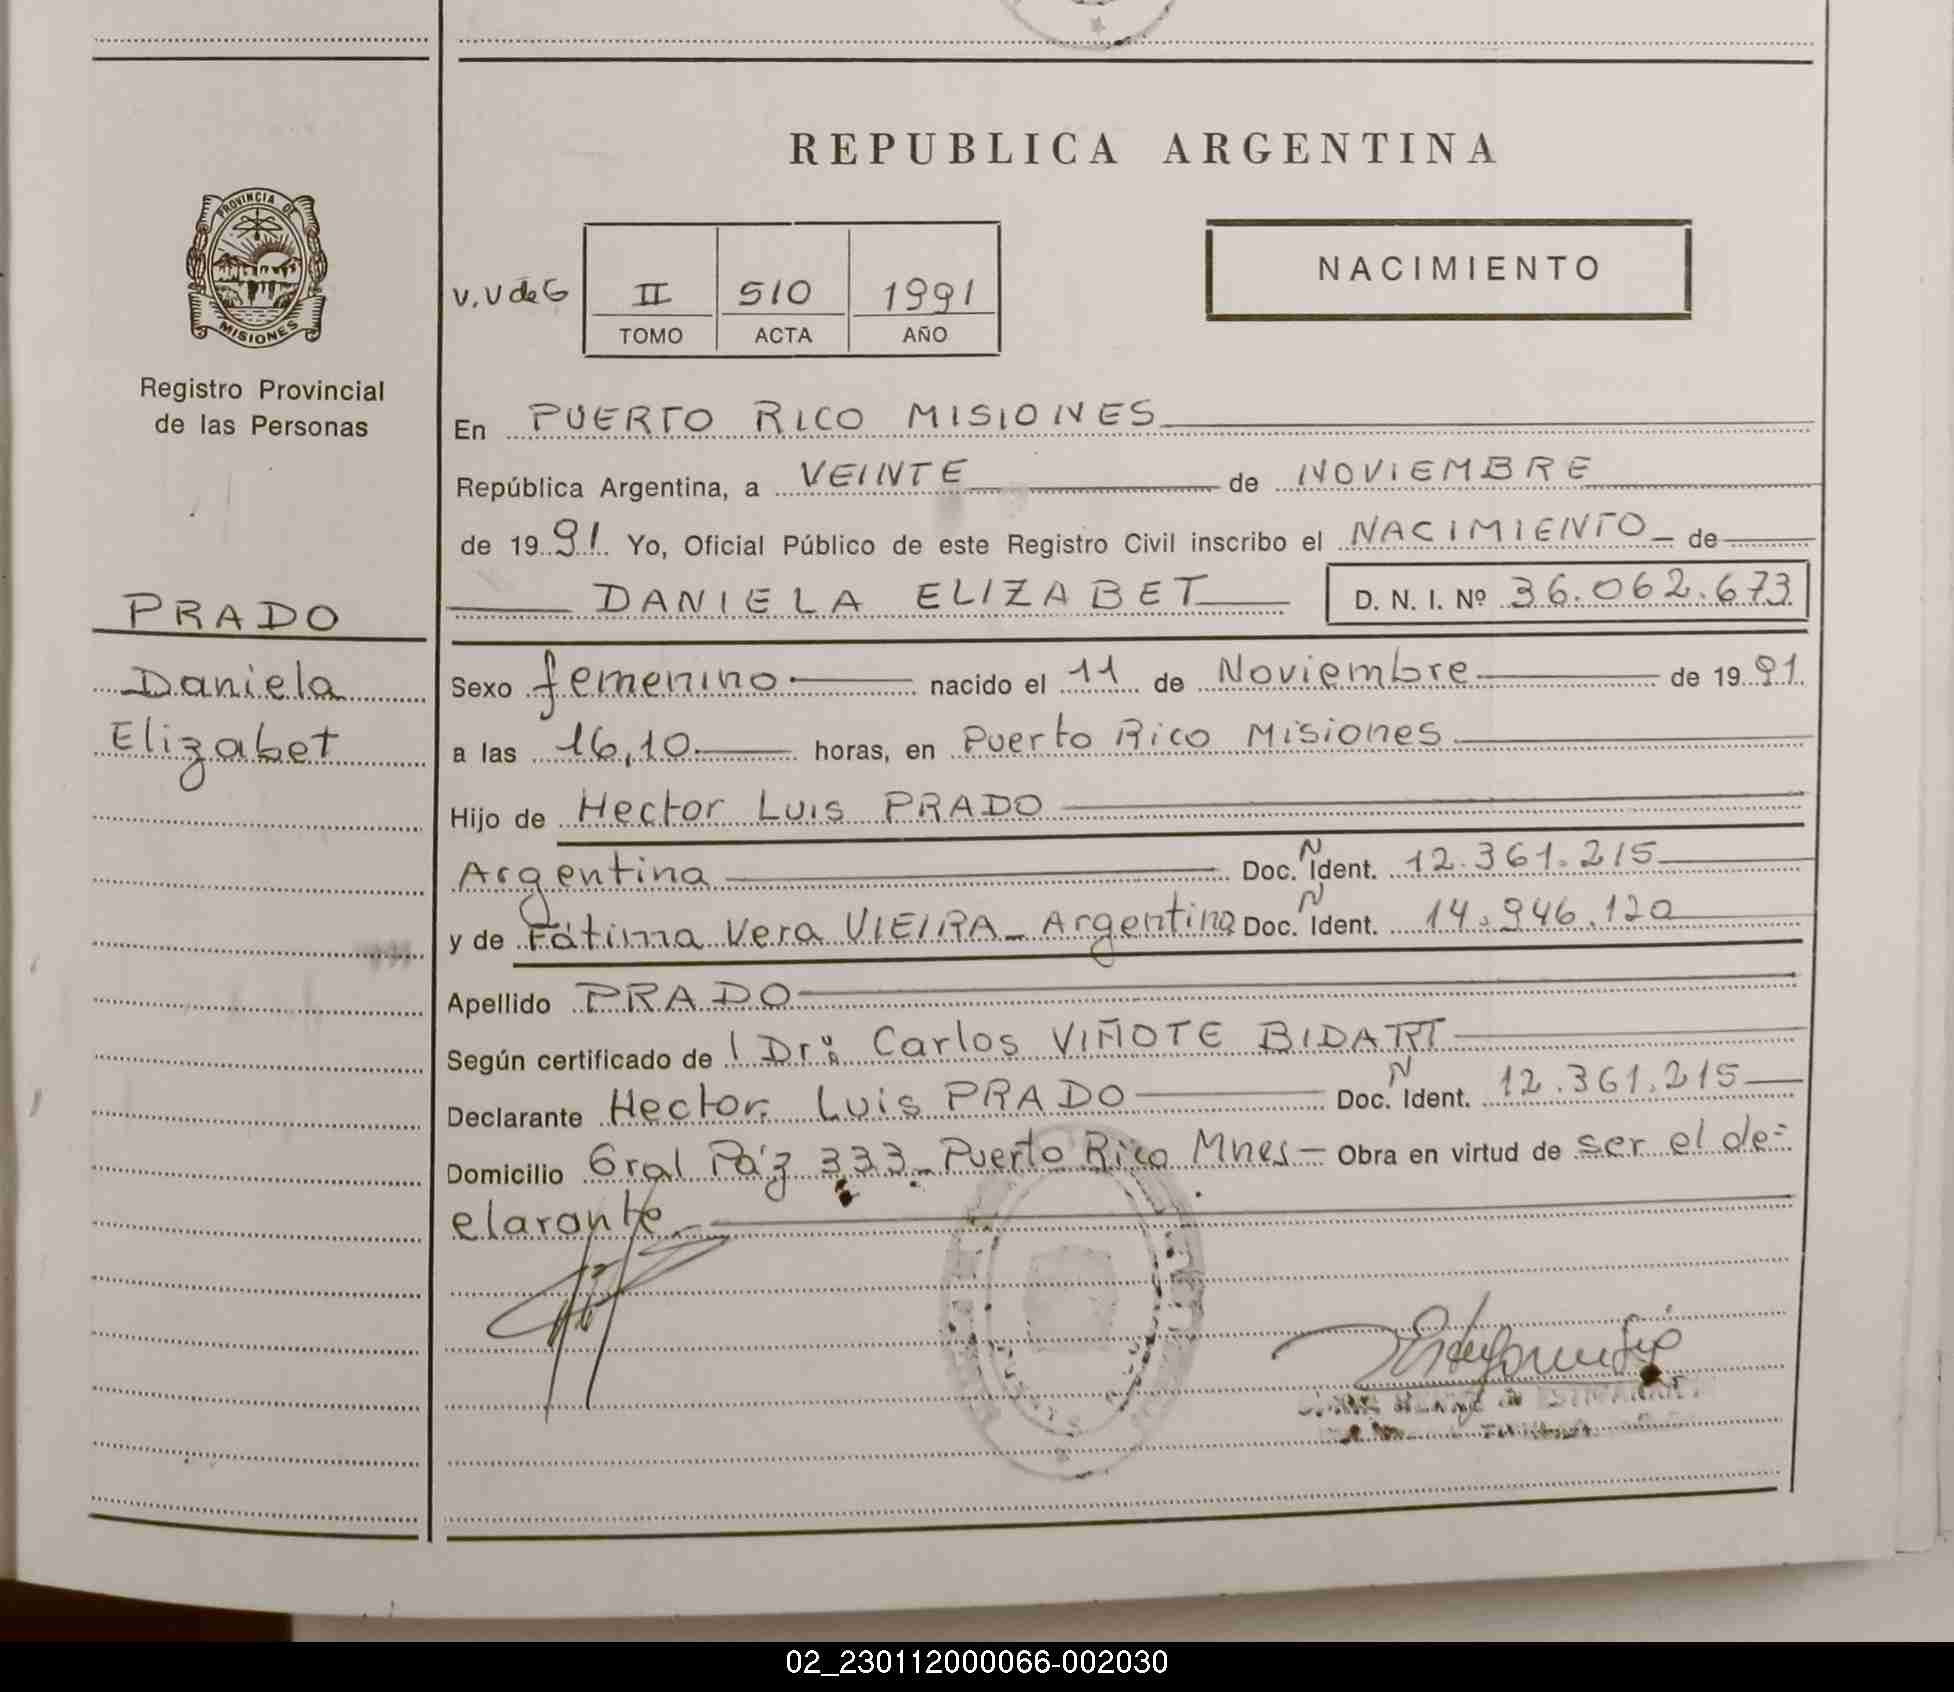 REPUBLICA ARGENTINA
PROVINCIA DE
MISIONES
Registro Provincial
de las Personas
NACIMIENTO
V.V de G II 510 1991
TOMO ACTA AÑO
En PUERTO RICO MISIONES
República Argentina, a VEINTE de NOVIEMBRE
de 1991. Yo, Oficial Público de este Registro Civil inscribo el NACIMIENTO de
DANIELA ELIZABET D. N. I. Nº 36.062.673
PRADO
Daniela
Elizabet
Sexo femenino nacido el 11 de Noviembre de 1991.
a las 16,10 horas, en Puerto Rico Misiones
Hijo de Hector Luis PRADO
Argentina Doc. N Ident. 12.361.215
y de Fátima Vera VIEIRA - Argentina Doc. N Ident. 14.946.120
Apellido PRADO
Según certificado de l Dr: Carlos VIÑOTE BIDART
Declarante Hector Luis PRADO Doc. N Ident. 12.361.215
Domicilio Gral Páz 333 - Puerto Rico Mnes - Obra en virtud de ser el de=
clarante.
02_230112000066-002030